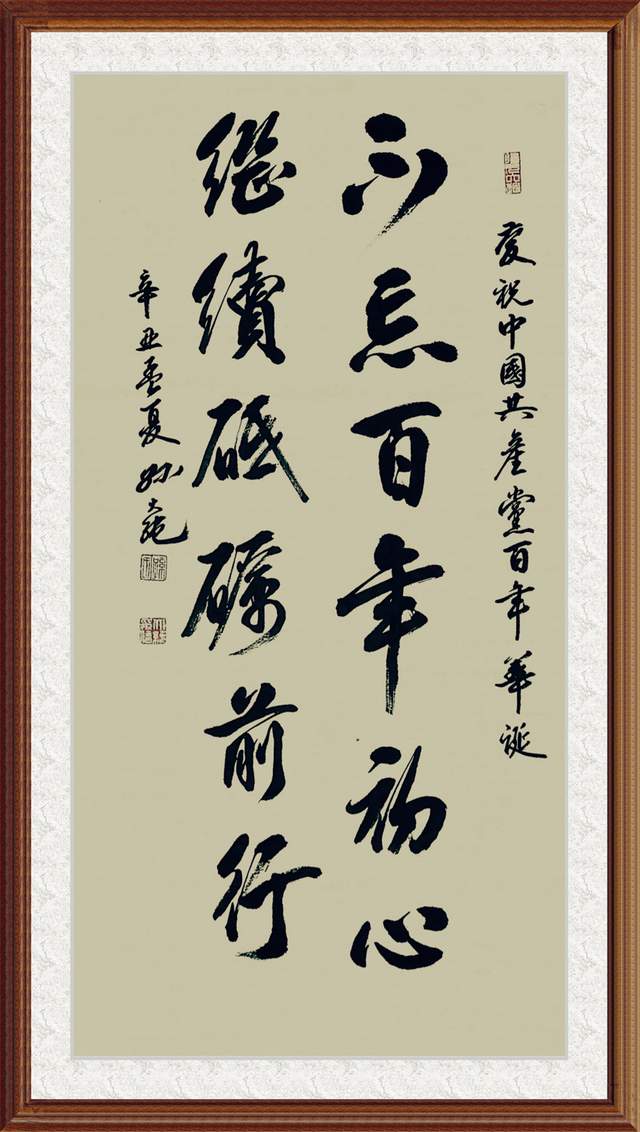 慶祝中國共產黨百年華誕
不忘百年初心
繼續砥礪前行
辛丑孟夏